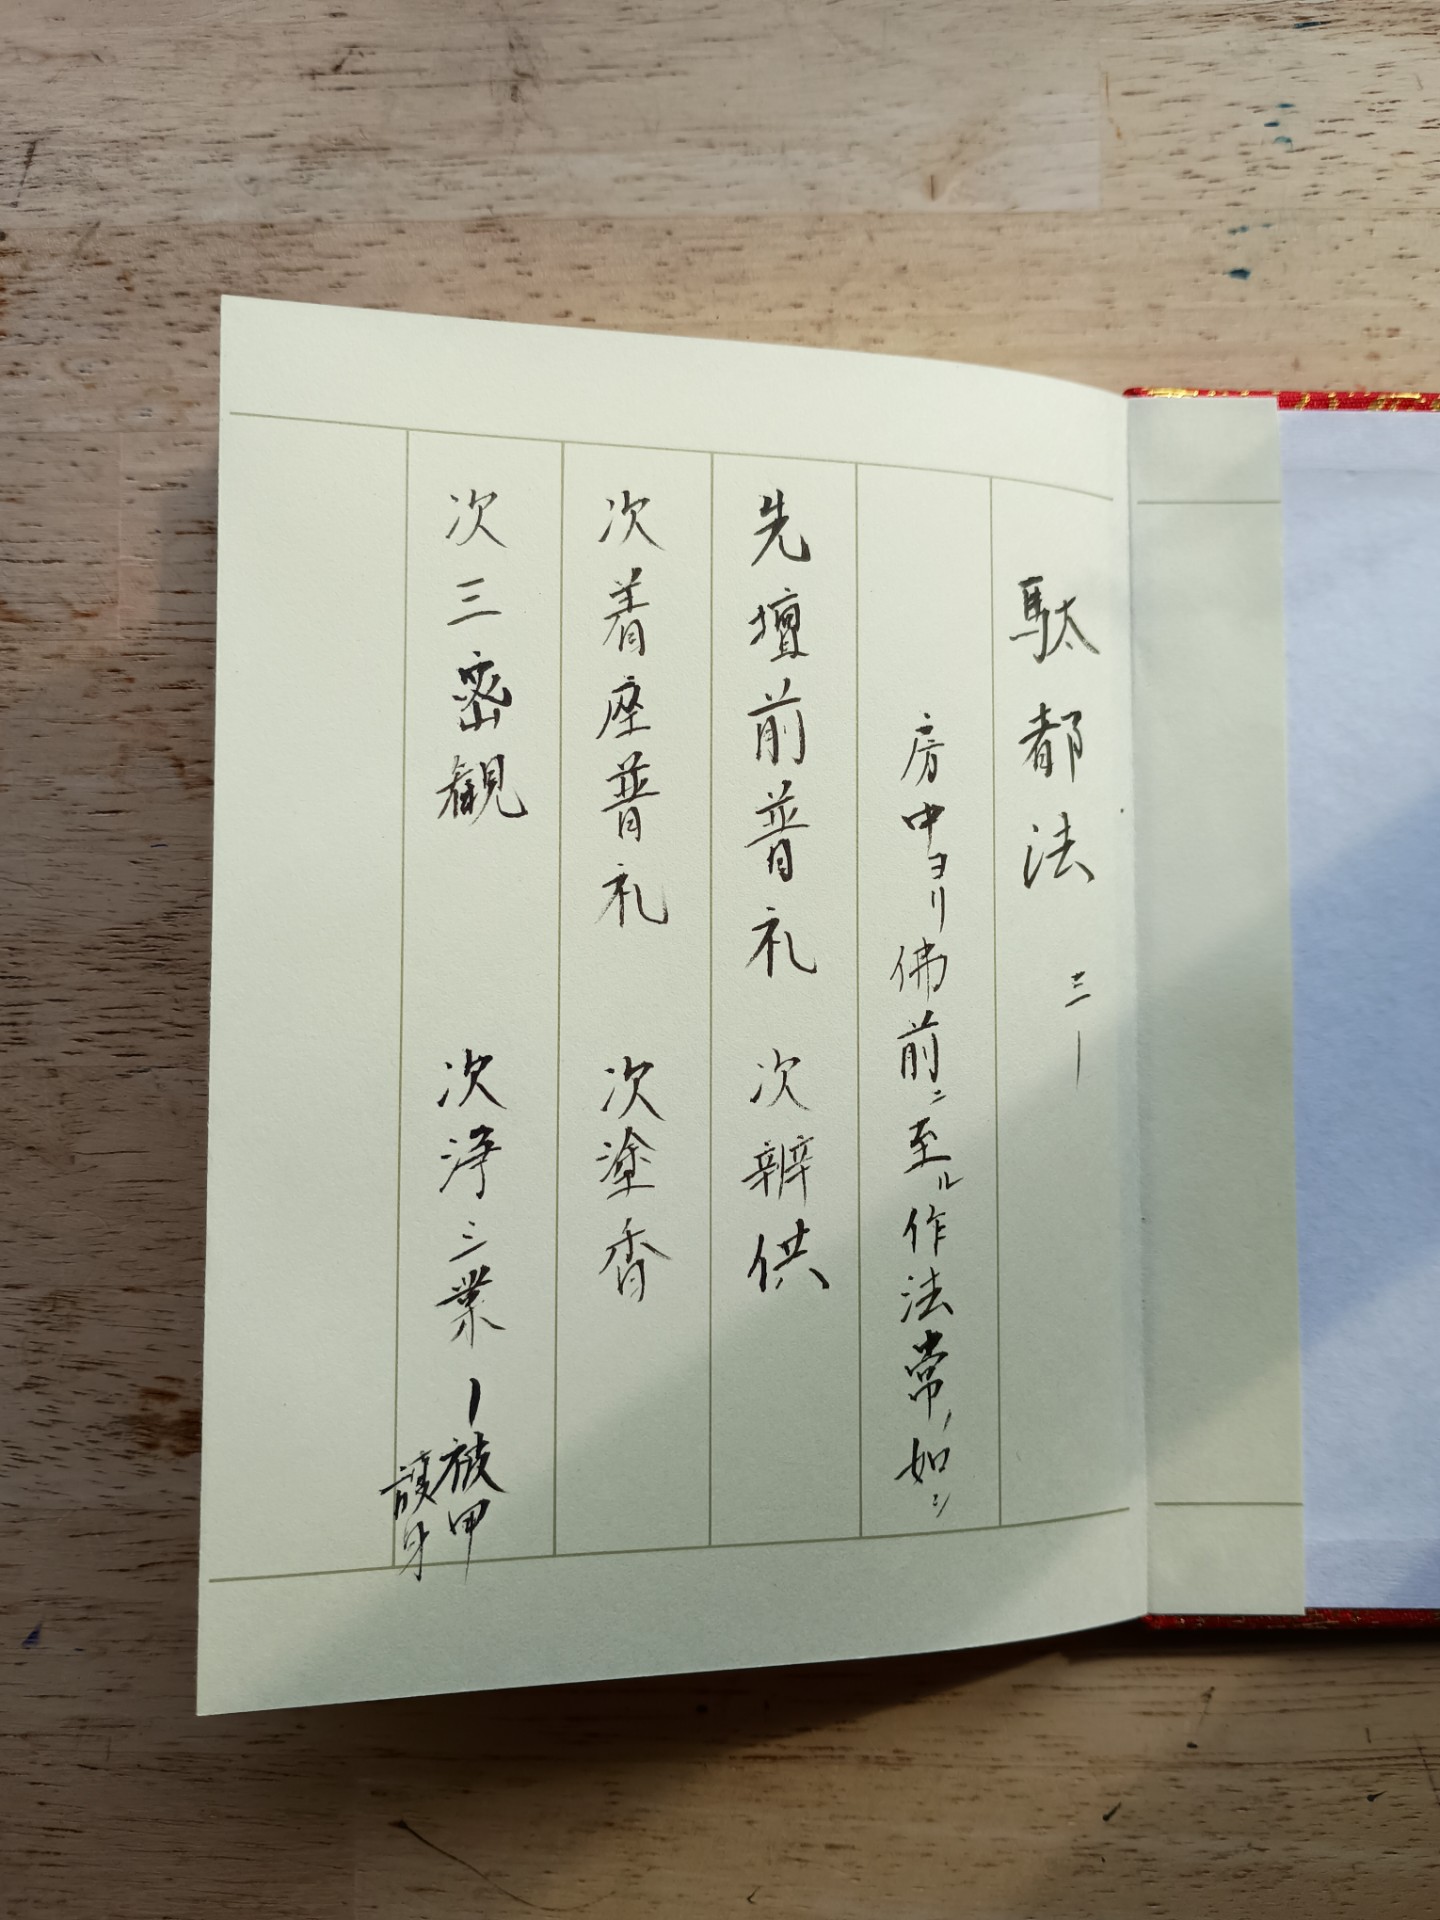 馱都法 三ー
房中ヨリ佛前ニ至ル作法常ノ如シ
先壇前普礼 次辨供
次着座普礼 次塗香
次三密観 次浄三業ー被甲
護身